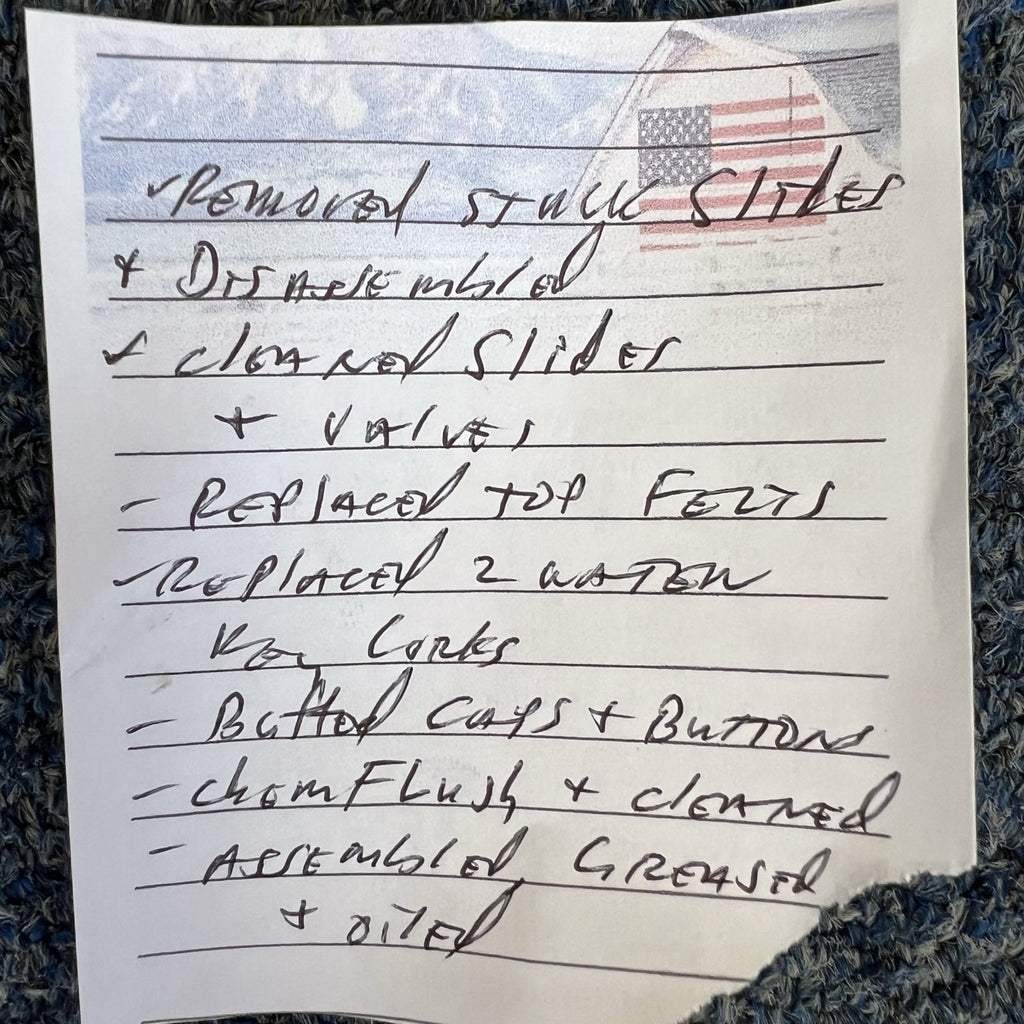 ✓Removed stuck Slides
+ Disassembled
✓ cleaned Slides
+ valves
- Replaced top Felts
-Replaced 2 water
Key Corks
- Buffed caps + Buttons
- chem Flush + cleaned
- Assembled, Greased
+ oiled